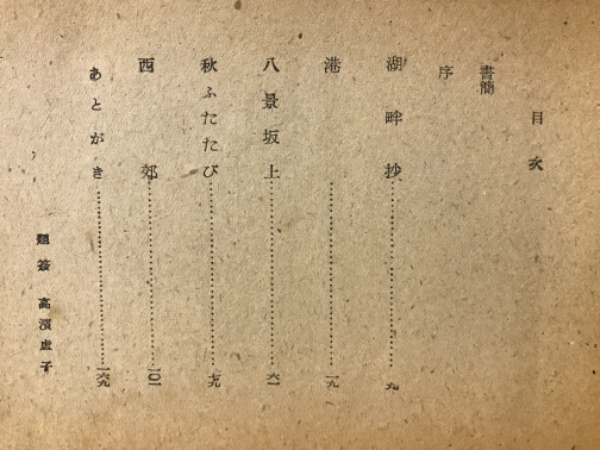 目次
書簡
序
湖畔抄……九
港……一九
八景坂上……六一
秋ふたたび……七九
西郊……一〇一
あとがき……一六九
題簽 高濱虚子